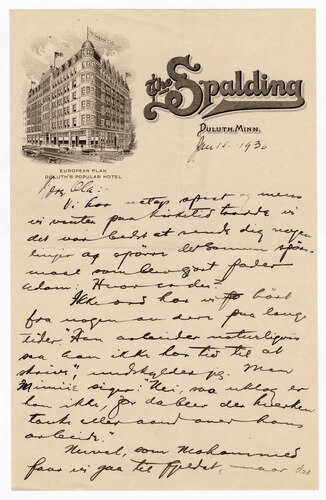 The Spalding
DULUTH, MINN.
EUROPEAN PLAN
DULUTH'S POPULAR HOTEL
Jan 15 1930
Ola:-
Vi har netop spist og mens
vi venter paa trode vi
det var bedst at sende dig nogen
linjer og spørre det samme spørs-
maal som blev gjort fader
Adam: Hvor er du?
Ikke ord har vi hört
fra nogen av dere paa lange
tider. "Han arbeider naturligvis
saa han ikke har tid til at
skrive," undskylder jeg. Men
Minnie siger: "Nei, saa uklog er
han ikke, for da blev der hverken
tanke eller aand over hans
arbeide."
Nuvel, som Mohammed
faar vi gaa til fjeldet, naar det